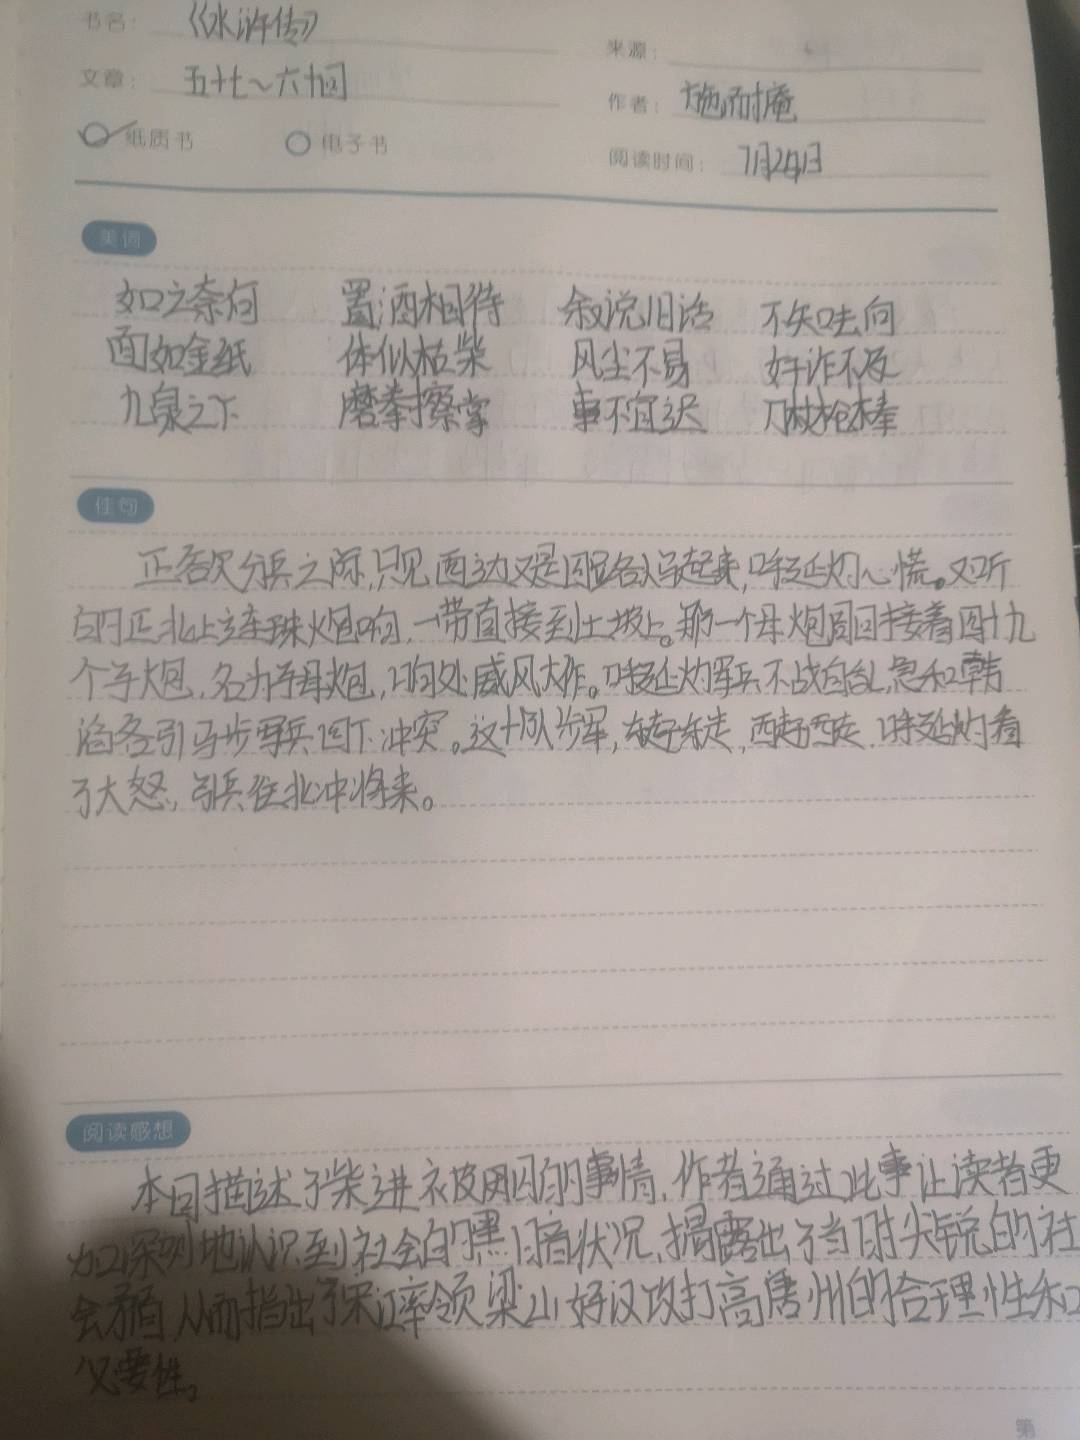 书名： 《水浒传》
来源：
文章： 五十七~六十回
作者： 施耐庵
纸质书 电子书
阅读时间： 7月24日
美词
如之奈何 置酒相待 叙说旧话 不知去向
面如金纸 体似枯柴 风尘不易 奸诈不及
九泉之下 磨拳擦掌 事不宜迟 刀枪棒
佳句
正欲分兵之际，只见西边又是四队人马起来，呼延灼心慌。又听
的正北上连珠炮响，一带直接到土坡上。那一个母炮周回接着四十九
个子炮，名为子母炮，响处威风大作。呼延灼军兵不战自乱，急和韩
滔各引马步军兵四下冲突。这十队步军，东赶东走，西赶西走，呼延灼看
了大怒，引兵往北冲将来。
阅读感想
本回描述了柴进被囚的事情，作者通过此事让读者更
加深刻地认识到社会的黑暗状况，揭露出了当时尖锐的社
会矛盾，从而指出了宋江率领梁山好汉攻打高唐州的合理性和
必要性，
第